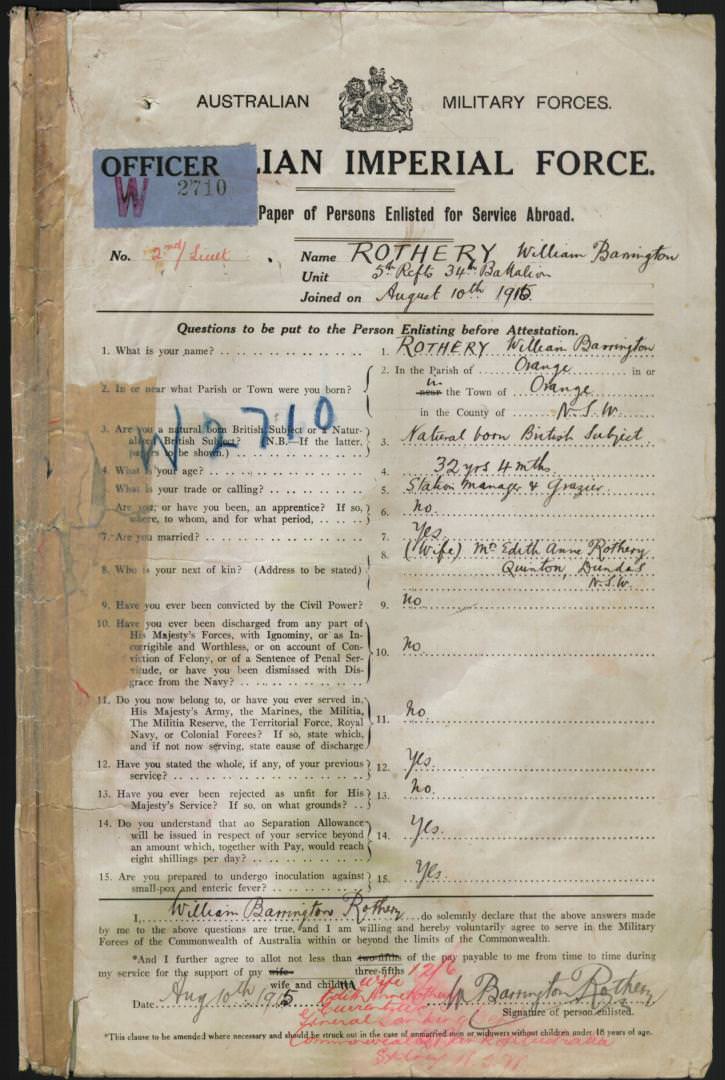 AUSTRALIAN MILITARY FORCES.
OFFICER LIAN IMPERIAL FORCE.
W 2710
Paper of Persons Enlisted for Service Abroad.
No. 2nd/Lieut Name ROTHERY William Barrington
Unit 5th Refts 34th Battalion
Joined on August 10th 1915.
Questions to be put to the Person Enlisting before Attestation.
1. What is your name? 1. ROTHERY William Barrington
2. In or near what Parish or Town were you born? 2. In the Parish of Orange in or
in near the Town of Orange
in the County of N.S.W.
W2710
3. Are you a natural born British Subject or a Natur-
alized British Subject? (N.B.—If the latter,
papers to be shown.) 3. Natural born British Subject.
4. What is your age? 4. 32 yrs 4 mths
What is your trade or calling? 5. Station Manager & Grazier
Are you, or have you been, an apprentice? If so,
where, to whom, and for what period, 6. no.
7. Are you married? 7. Yes.
8. Who is your next of kin? (Address to be stated) 8. (Wife) Mrs Edith Anne Rothery
Quinton, Dundas
N.S.W.
9. Have you ever been convicted by the Civil Power? 9. no
10. Have you ever been discharged from any part of
His Majesty's Forces, with Ignominy, or as In-
corrigible and Worthless, or on account of Con-
viction of Felony, or of a Sentence of Penal Ser-
vitude, or have you been dismissed with Dis-
grace from the Navy? 10. no.
11. Do you now belong to, or have you ever served in,
His Majesty's Army, the Marines, the Militia,
The Militia Reserve, the Territorial Force, Royal
Navy, or Colonial Forces? If so, state which,
and if not now serving, state cause of discharge 11. no.
12. Have you stated the whole, if any, of your previous
service? 12. Yes.
13. Have you ever been rejected as unfit for His
Majesty's Service? If so, on what grounds? 13. no.
14. Do you understand that no Separation Allowance
will be issued in respect of your service beyond
an amount which, together with Pay, would reach
eight shillings per day? 14. Yes.
15. Are you prepared to undergo inoculation against
small-pox and enteric fever? 15. Yes.
I, William Barrington Rothery do solemnly declare that the above answers made
by me to the above questions are true, and I am willing and hereby voluntarily agree to serve in the Military
Forces of the Commonwealth of Australia within or beyond the limits of the Commonwealth.
*And I further agree to allot not less than two-fifths of the pay payable to me from time to time during
three-fifths 12/6
my service for the support of my wife
wife and children wife
Date Aug 10th 1915 Edith Anne Rothery W Barrington Rothery
Signature of person enlisted.
*This clause to be amended where necessary and should be struck out in the case of unmarried men or widowers without children under 18 years of age.
Commonwealth Bank of Australia
Sydney N.S.W